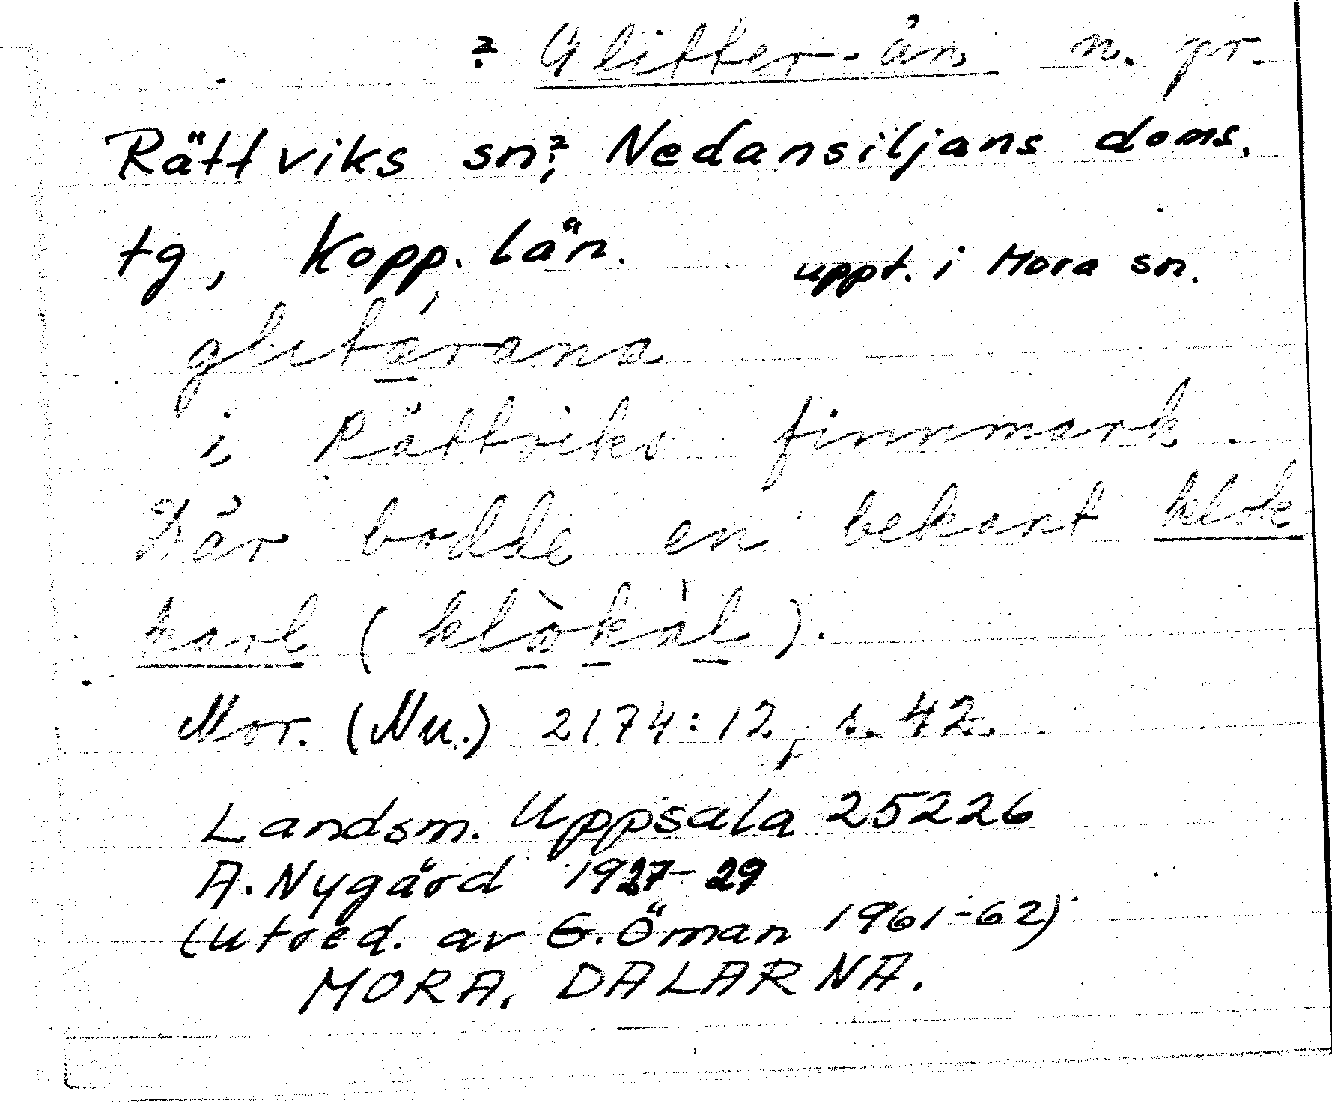 ? Glitter-ån n. pr.
Rättviks sn?, Nedansiljans doms.
tg, Kopp. län. uppt. i Mora sn.
glitårana
i Rättviks finnmark.
Där bodde en bekant klok
karl (klòkàl).
Mor. (Nu.) 2174:12, s. 42.
Landsm. Uppsala 25226
A. Nygård 1927-29
(utred. av G. Öman 1961-62)
MORA, DALARNA.